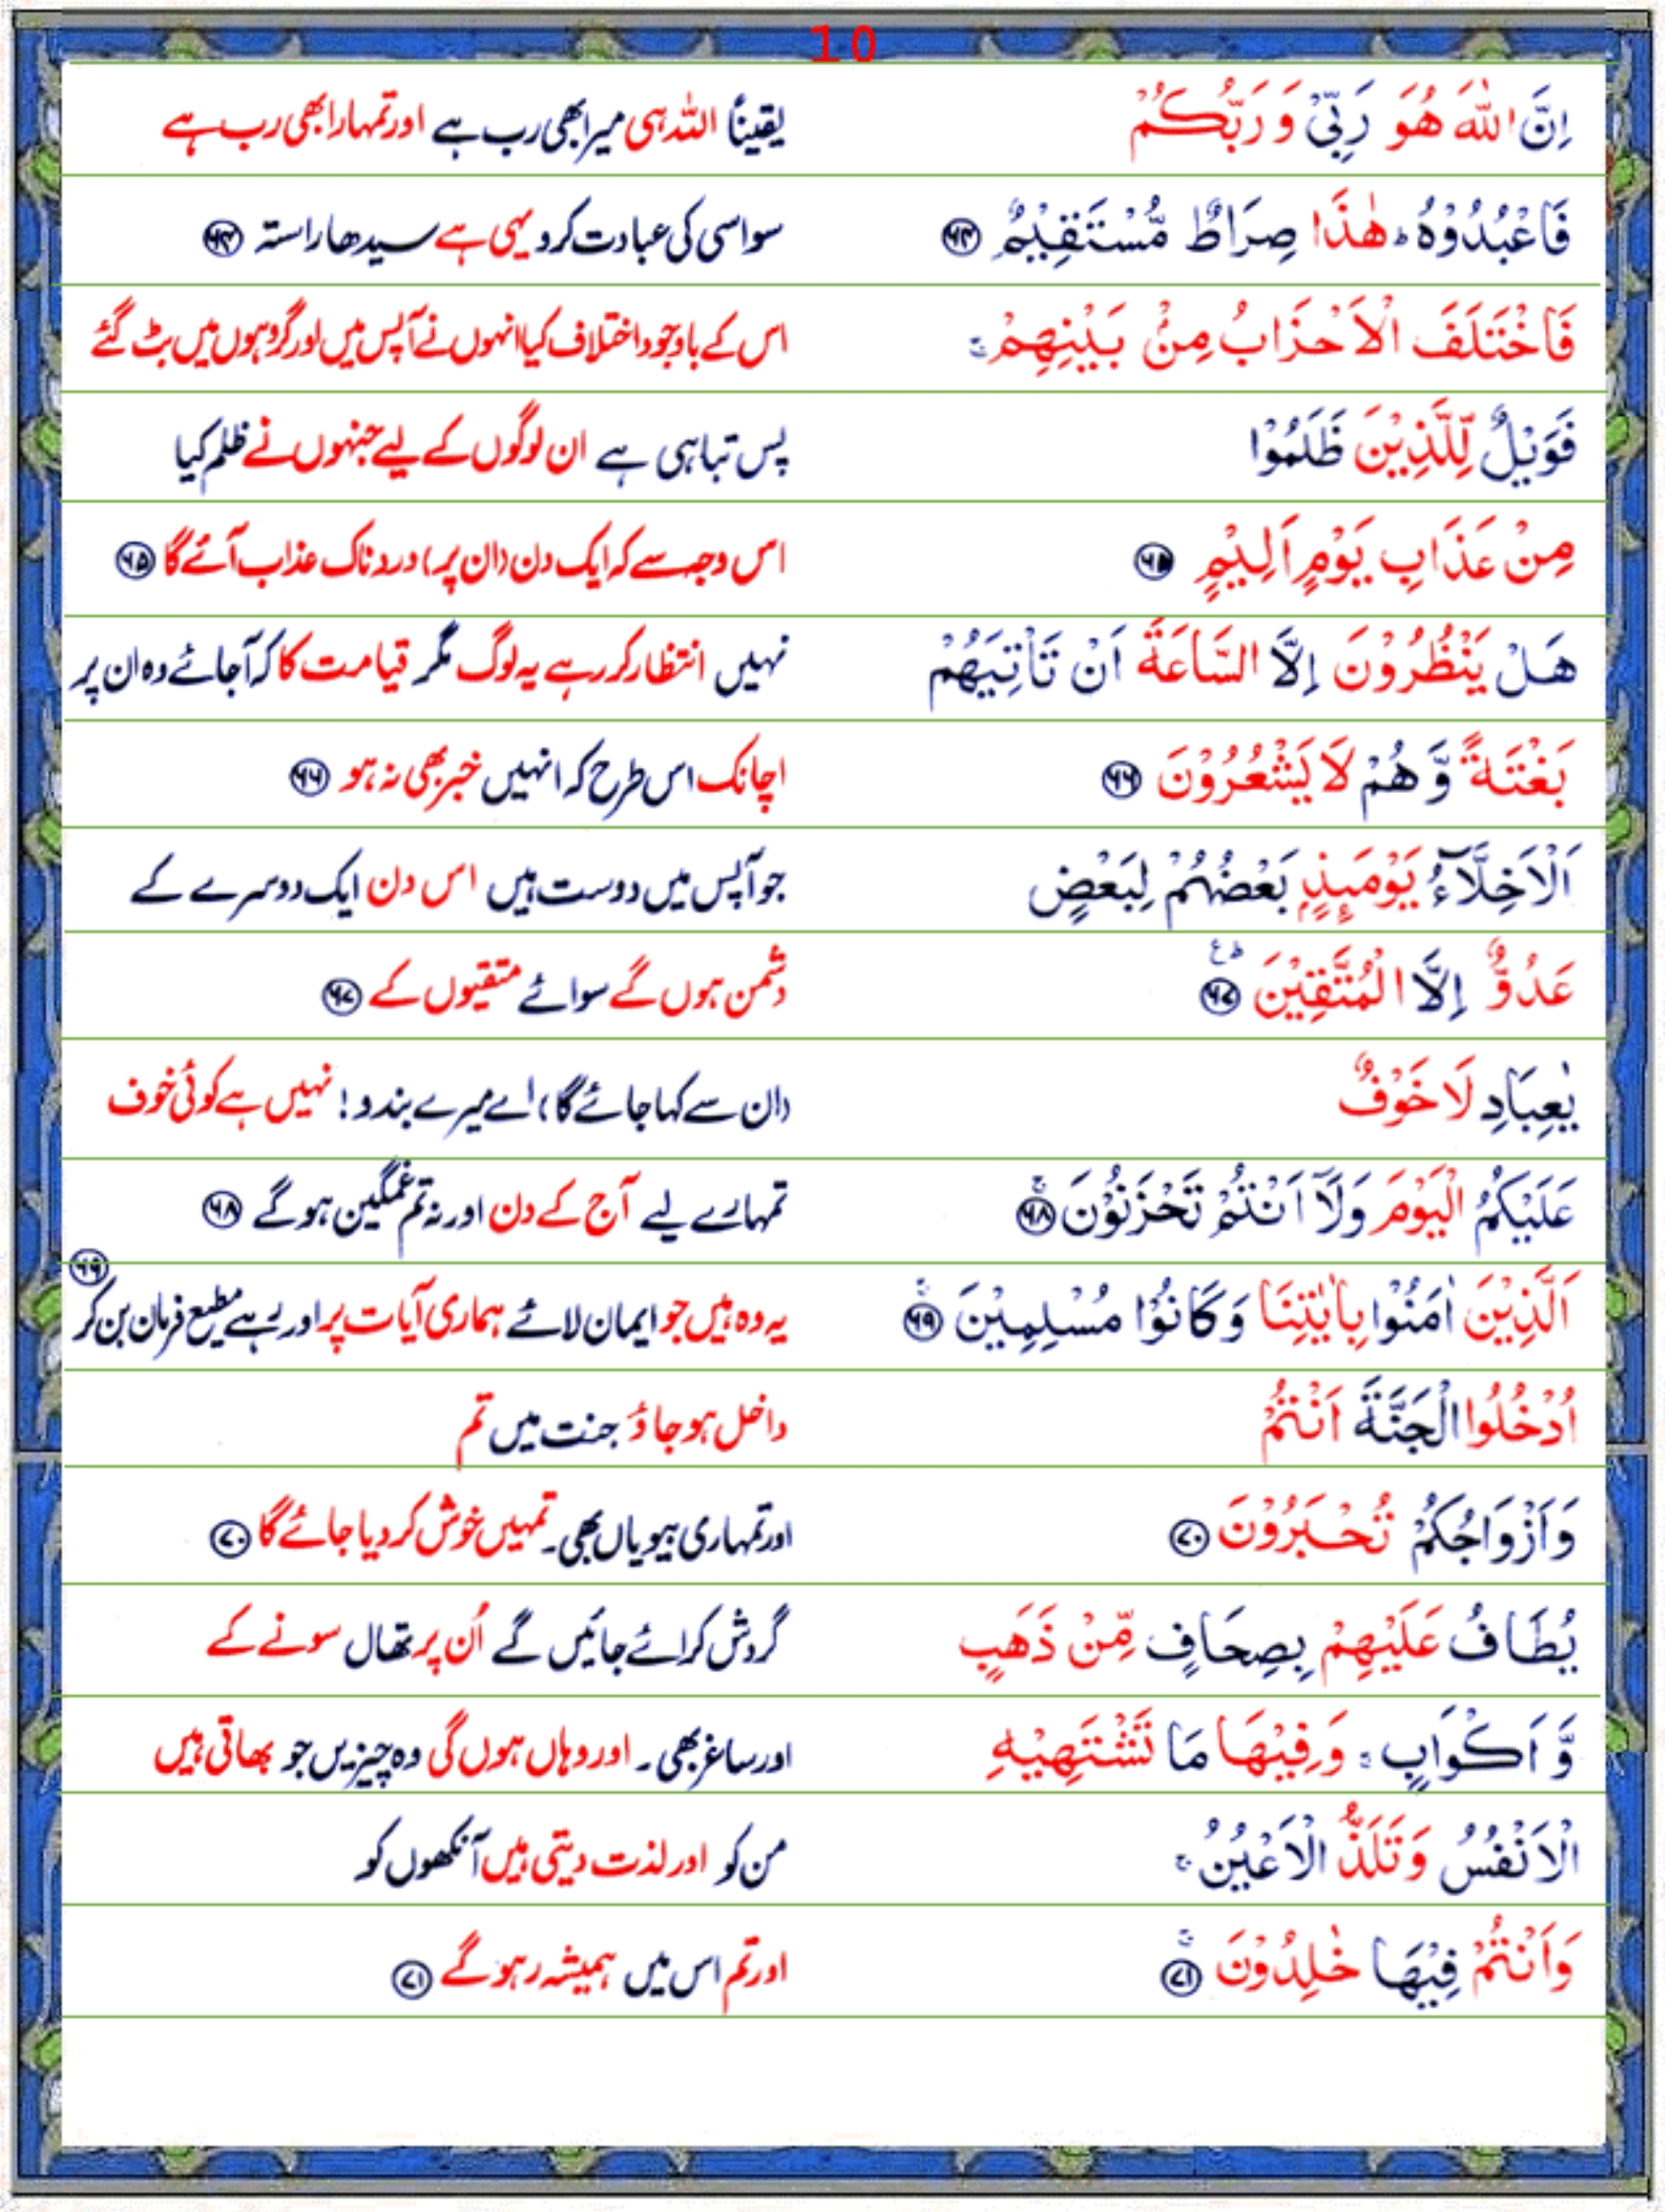 10
اِنَّ اللّٰهَ هُوَ رَبِّيْ وَ رَبُّكُمْ یقیناً اللہ ہی میرا بھی رب ہے اور تمہارا بھی رب ہے
فَاعْبُدُوْهُ ؕ هٰذَا صِرَاطٌ مُّسْتَقِيْمٌ ۶۴ سو اسی کی عبادت کرو یہی ہے سیدھا راستہ ۶۴
فَاخْتَلَفَ الْاَحْزَابُ مِنْۢ بَيْنِهِمْ ۚ اس کے باوجود اختلاف کیا انہوں نے آپس میں اور گروہوں میں بٹ گئے
فَوَيْلٌ لِّلَّذِيْنَ ظَلَمُوْا پس تباہی ہے ان لوگوں کے لیے جنہوں نے ظلم کیا
مِنْ عَذَابِ يَوْمٍ اَلِيْمٍ ۶۵ اس وجہ سے کہ ایک دن (ان پر) دردناک عذاب آئے گا ۶۵
هَلْ يَنْظُرُوْنَ اِلَّا السَّاعَةَ اَنْ تَاْتِيَهُمْ نہیں انتظار کر رہے یہ لوگ مگر قیامت کا کہ آجائے وہ ان پر
بَغْتَةً وَّ هُمْ لَا يَشْعُرُوْنَ ۶۶ اچانک اس طرح کہ انہیں خبر بھی نہ ہو ۶۶
اَلْاَخِلَّآءُ يَوْمَىِٕذٍۭ بَعْضُهُمْ لِبَعْضٍ جو آپس میں دوست ہیں اس دن ایک دوسرے کے
عَدُوٌّ اِلَّا الْمُتَّقِيْنَ ؕ ع ۶۷ دشمن ہوں گے سوائے متقیوں کے ۶۷
يٰعِبَادِ لَا خَوْفٌ (ان سے کہا جائے گا) اے میرے بندو! نہیں ہے کوئی خوف
عَلَيْكُمُ الْيَوْمَ وَلَاۤ اَنْتُمْ تَحْزَنُوْنَ ۚ ۶۸ تمہارے لیے آج کے دن اور نہ تم غمگین ہو گے ۶۸
اَلَّذِيْنَ اٰمَنُوْا بِاٰيٰتِنَا وَكَانُوْا مُسْلِمِيْنَ ۚ ۶۹ یہ وہ ہیں جو ایمان لائے ہماری آیات پر اور رہے مطیع فرمان بن کر ۶۹
اُدْخُلُوا الْجَنَّةَ اَنْتُمْ داخل ہو جاؤ جنت میں تم
وَاَزْوَاجُكُمْ تُحْبَرُوْنَ ۷۰ اور تمہاری بیویاں بھی۔ تمہیں خوش کر دیا جائے گا ۷۰
يُطَافُ عَلَيْهِمْ بِصِحَافٍ مِّنْ ذَهَبٍ گردش کرائے جائیں گے اُن پر تھال سونے کے
وَّ اَكْوَابٍ ۚ وَفِيْهَا مَا تَشْتَهِيْهِ اور ساغر بھی۔ اور وہاں ہوں گی وہ چیزیں جو بھاتی ہیں
الْاَنْفُسُ وَتَلَذُّ الْاَعْيُنُ ۚ من کو اور لذت دیتی ہیں آنکھوں کو
وَاَنْتُمْ فِيْهَا خٰلِدُوْنَ ۚ ۷۱ اور تم اس میں ہمیشہ رہو گے ۷۱